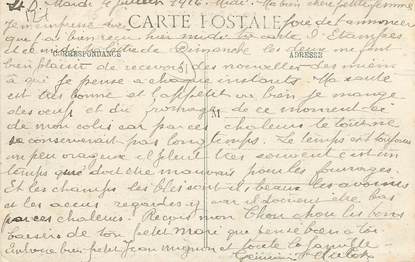 Mardi 4 Juillet 1916. Midi. Ma bien chère petite femme
Je m'empresse
CARTE POSTALE
de t'annoncer
que j'ai bien reçu hier midi ta carte d'Etampes
et ce midi ta lettre de Dimanche les deux me font
CORRESPONDANCE
ADRESSE
bien plaisir de recevoir des nouvelles des miens
à qui je pense à chaque instants. Ma santé
est très bonne et l'appétit va bien je mange
des oeufs et du fromage de ce moment ci
M
de mon colis car par ces chaleurs te tourne
conserverait pas longtemps. Le temps est toujours
un peu orageux il pleut très souvent c'est un
temps que doit être mauvais pour les fourrages.
Et les champs les blés sont ils beaux les avoines
et les
regardes y car il doivent être bas
par ces chaleurs. Reçois mon Chou chou les bons
baisers de ton petit mari que pense bien à toi
bien petit Jean mignon et toute la famille